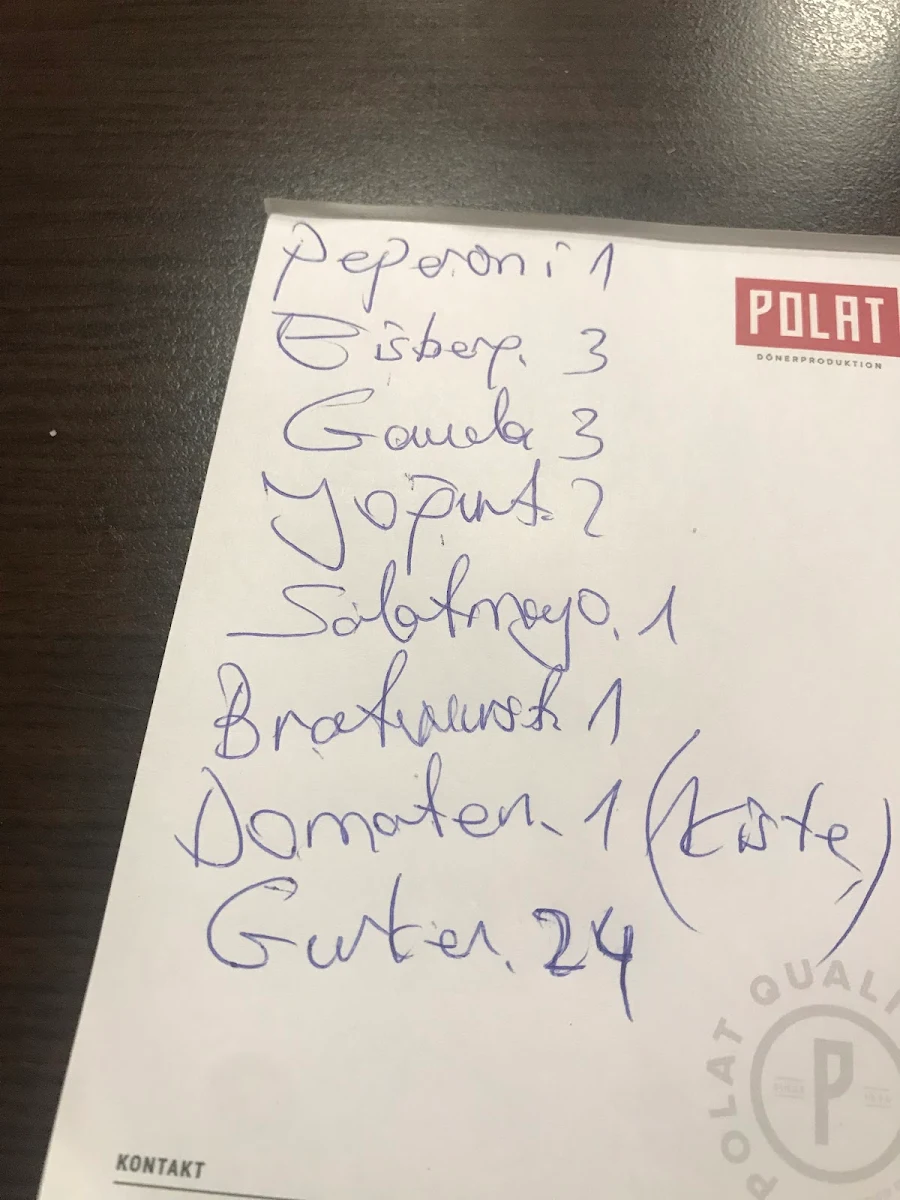 Peperoni 1
POLAT
DÖNERPRODUKTION
Eisberg. 3
Gouda 3
Yogurt. 2
Salatmayo. 1
Bratwurst. 1
Domaten. 1 (Kiste)
Gurken. 24
POLAT QUALI
P
KONTAKT